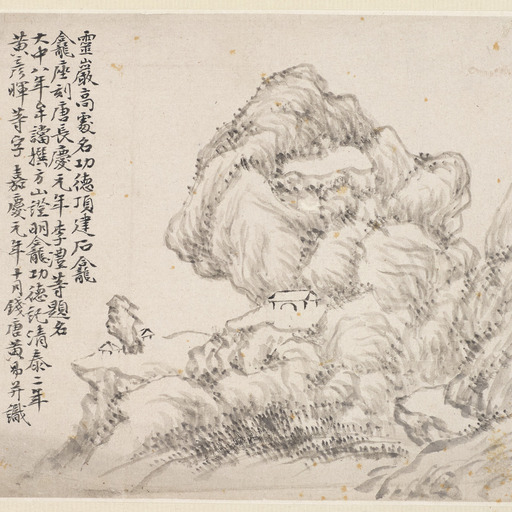 靈巖高處名功德頂建石龕
龕座刻唐長慶元年李豊等題名
大中八年牟璫撰方山證明龕功德記清泰二年
黃彥暉等字嘉慶元年十月錢唐黃易并識